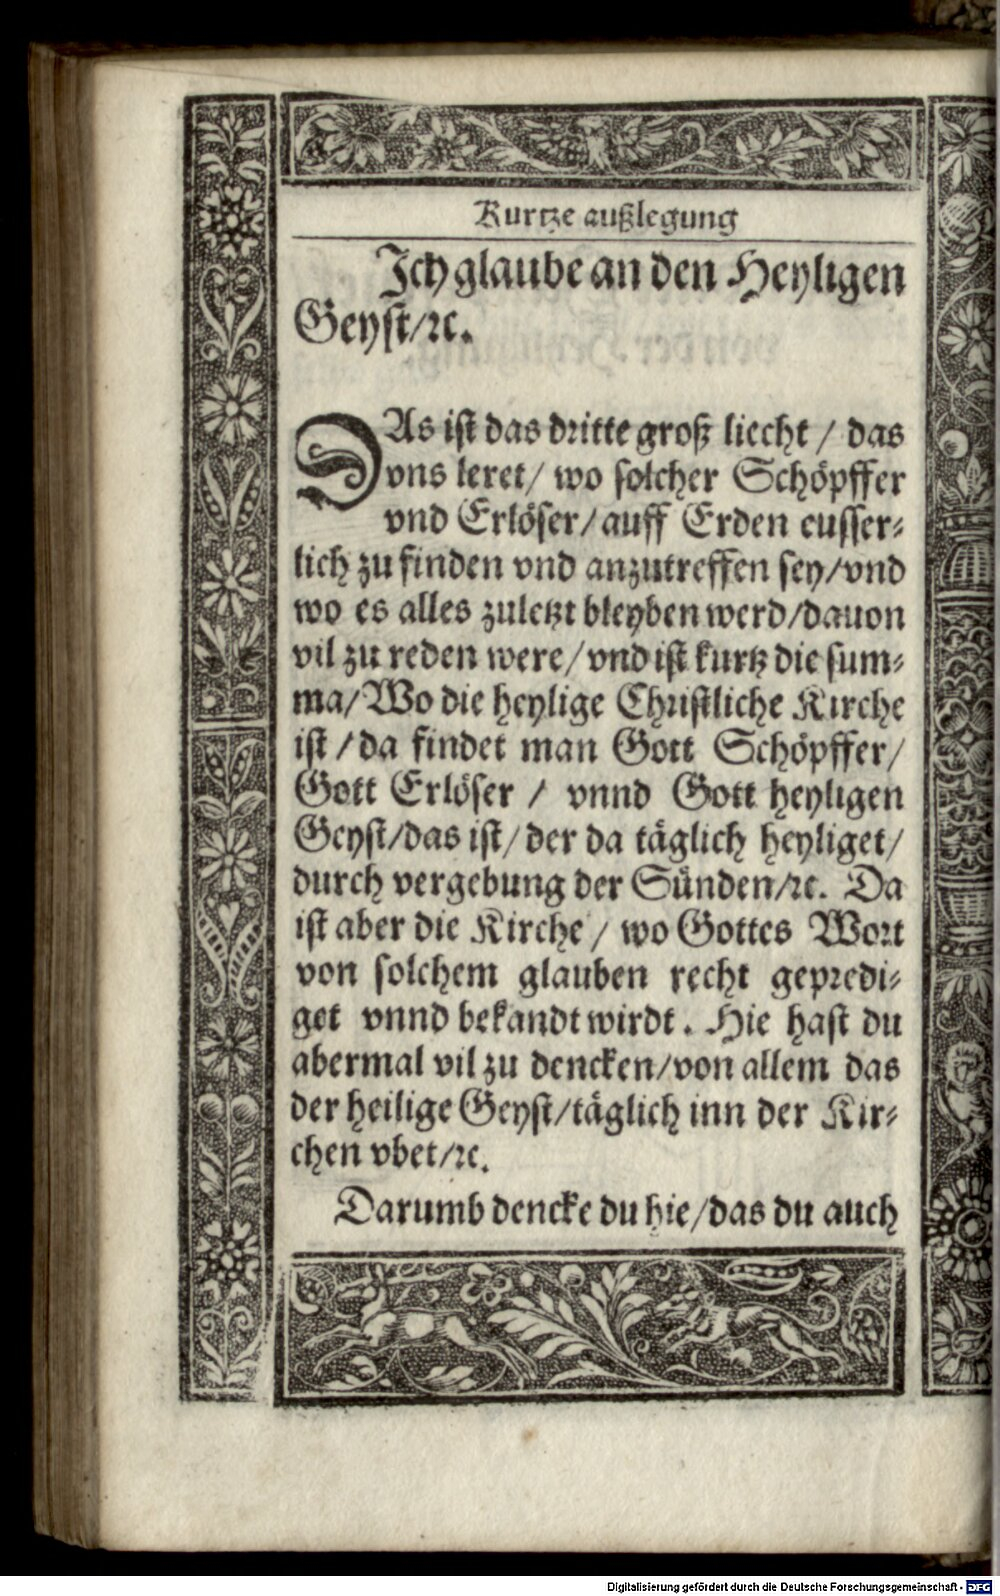 Kurtze außlegung
Ich glaube an den Heyligen
Geyst/ꝛc.
DAs ist das dritte groß liecht / das
vns leret/ wo solcher Schöpffer
vnd Erlöser/ auff Erden eusser⸗
lich zu finden vnd anzutreffen sey/vnd
wo es alles zuletzt bleyben werd/dauon
vil zu reden were/ vnd ist kurtz die sum⸗
ma/Wo die heylige Christliche Kirche
ist / da findet man Gott Schöpffer/
Gott Erlöser / vnnd Gott heyligen
Geyst/das ist/ der da täglich heyliget/
durch vergebung der Sünden/ꝛc. Da
ist aber die Kirche / wo Gottes Wort
von solchem glauben recht gepredi⸗
get vnnd bekandt wirdt. Hie hast du
abermal vil zu dencken/von allem das
der heilige Geyst/täglich inn der Kir⸗
chen vbet/ꝛc.
Darumb dencke du hie/das du auch
Digitalisierung gefördert durch die Deutsche Forschungsgemeinschaft - DFG